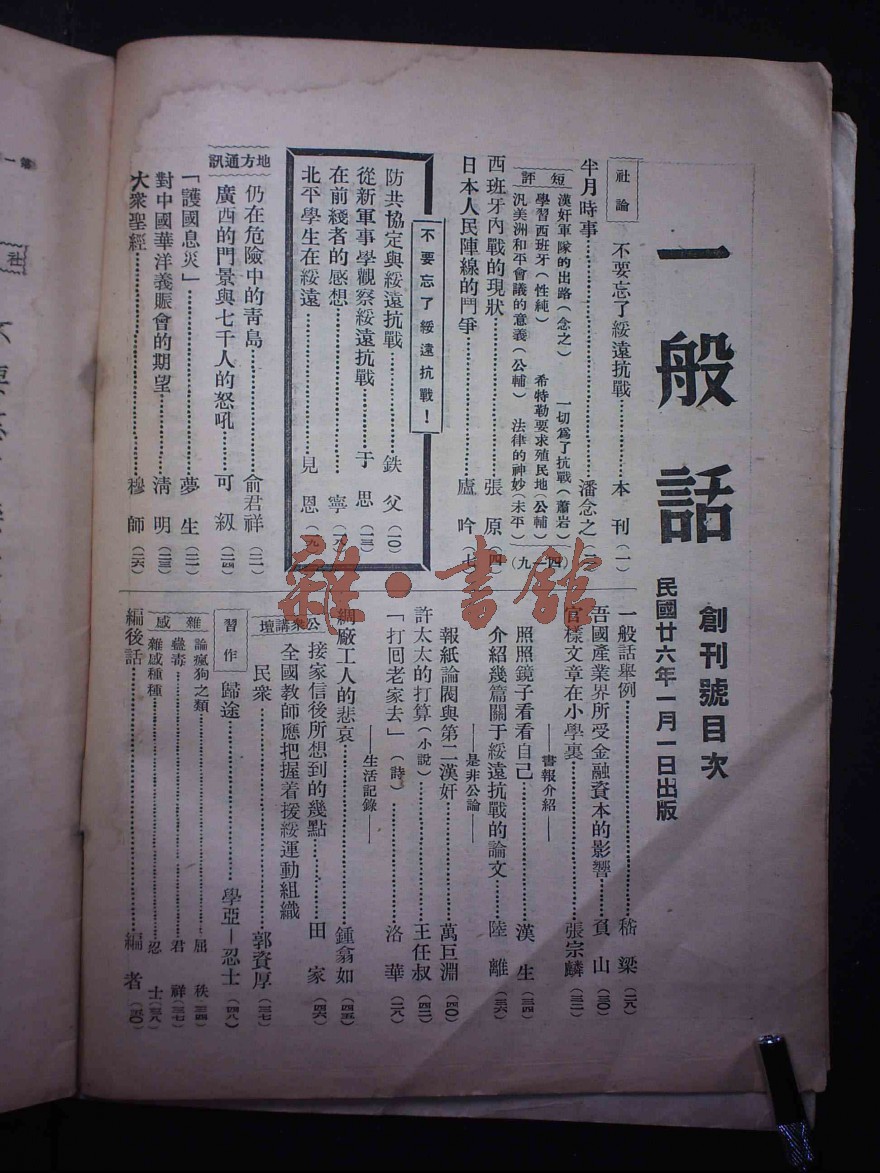 一般話
創刊號目次
民國廿六年一月一日出版
社論 不要忘了綏遠抗戰………本刊(一)
半月時事………潘念之(二)
短評
漢奸軍隊的出路(念之) 一切爲了抗戰(蕭岩)
學習西班牙(性純) 希特勒要求殖民地(公輔)
汎美洲和平會議的意義(公輔) 法律的神妙(未平)
(四—九)
西班牙內戰的現狀………張原(四)
日本人民陣線的鬥爭………廬吟(七)
不要忘了綏遠抗戰!
防共協定與綏遠抗戰………鉄父(一〇)
從新軍事學觀察綏遠抗戰………于思(一三)
在前綫者的感想………寧(一八)
北平學生在綏遠………見恩(一九)
地方通訊
仍在危險中的青島………俞君祥(二一)
廣西的門景與七千人的怒吼………可級(二四)
「護國息災」………夢生(二二)
對中國華洋義賑會的期望………清明(二三)
大衆聖經………穆師(二六)
一般話舉例………嵇梁(二八)
吾國產業界所受金融資本的影響………負山(三〇)
官樣文章在小學裏………張宗麟(三二)
——書報介紹——
照照鏡子看看自己………漢生(三四)
介紹幾篇關于綏遠抗戰的論文………陸離(三六)
——是非公論——
報紙論閥與第二漢奸………萬巨淵(四〇)
許太太的打算(小說)………王任叔(四二)
「打回老家去」(詩)………洛華(二八)
——生活記錄——
綢廠工人的悲哀………鍾翕如(四五)
接家信後所想到的幾點………田家(四六)
公衆講壇
全國教師應把握着援綏運動組織
民衆………郭資厚(三七)
習作 歸途………學亞—忍士(四八)
雜感
論瘋狗之類………屈秩(三四)
蠱毒………君祥(三七)
雜感種種………忍士(三八)
編後話………編者(五〇)
雜·書館
第一
社